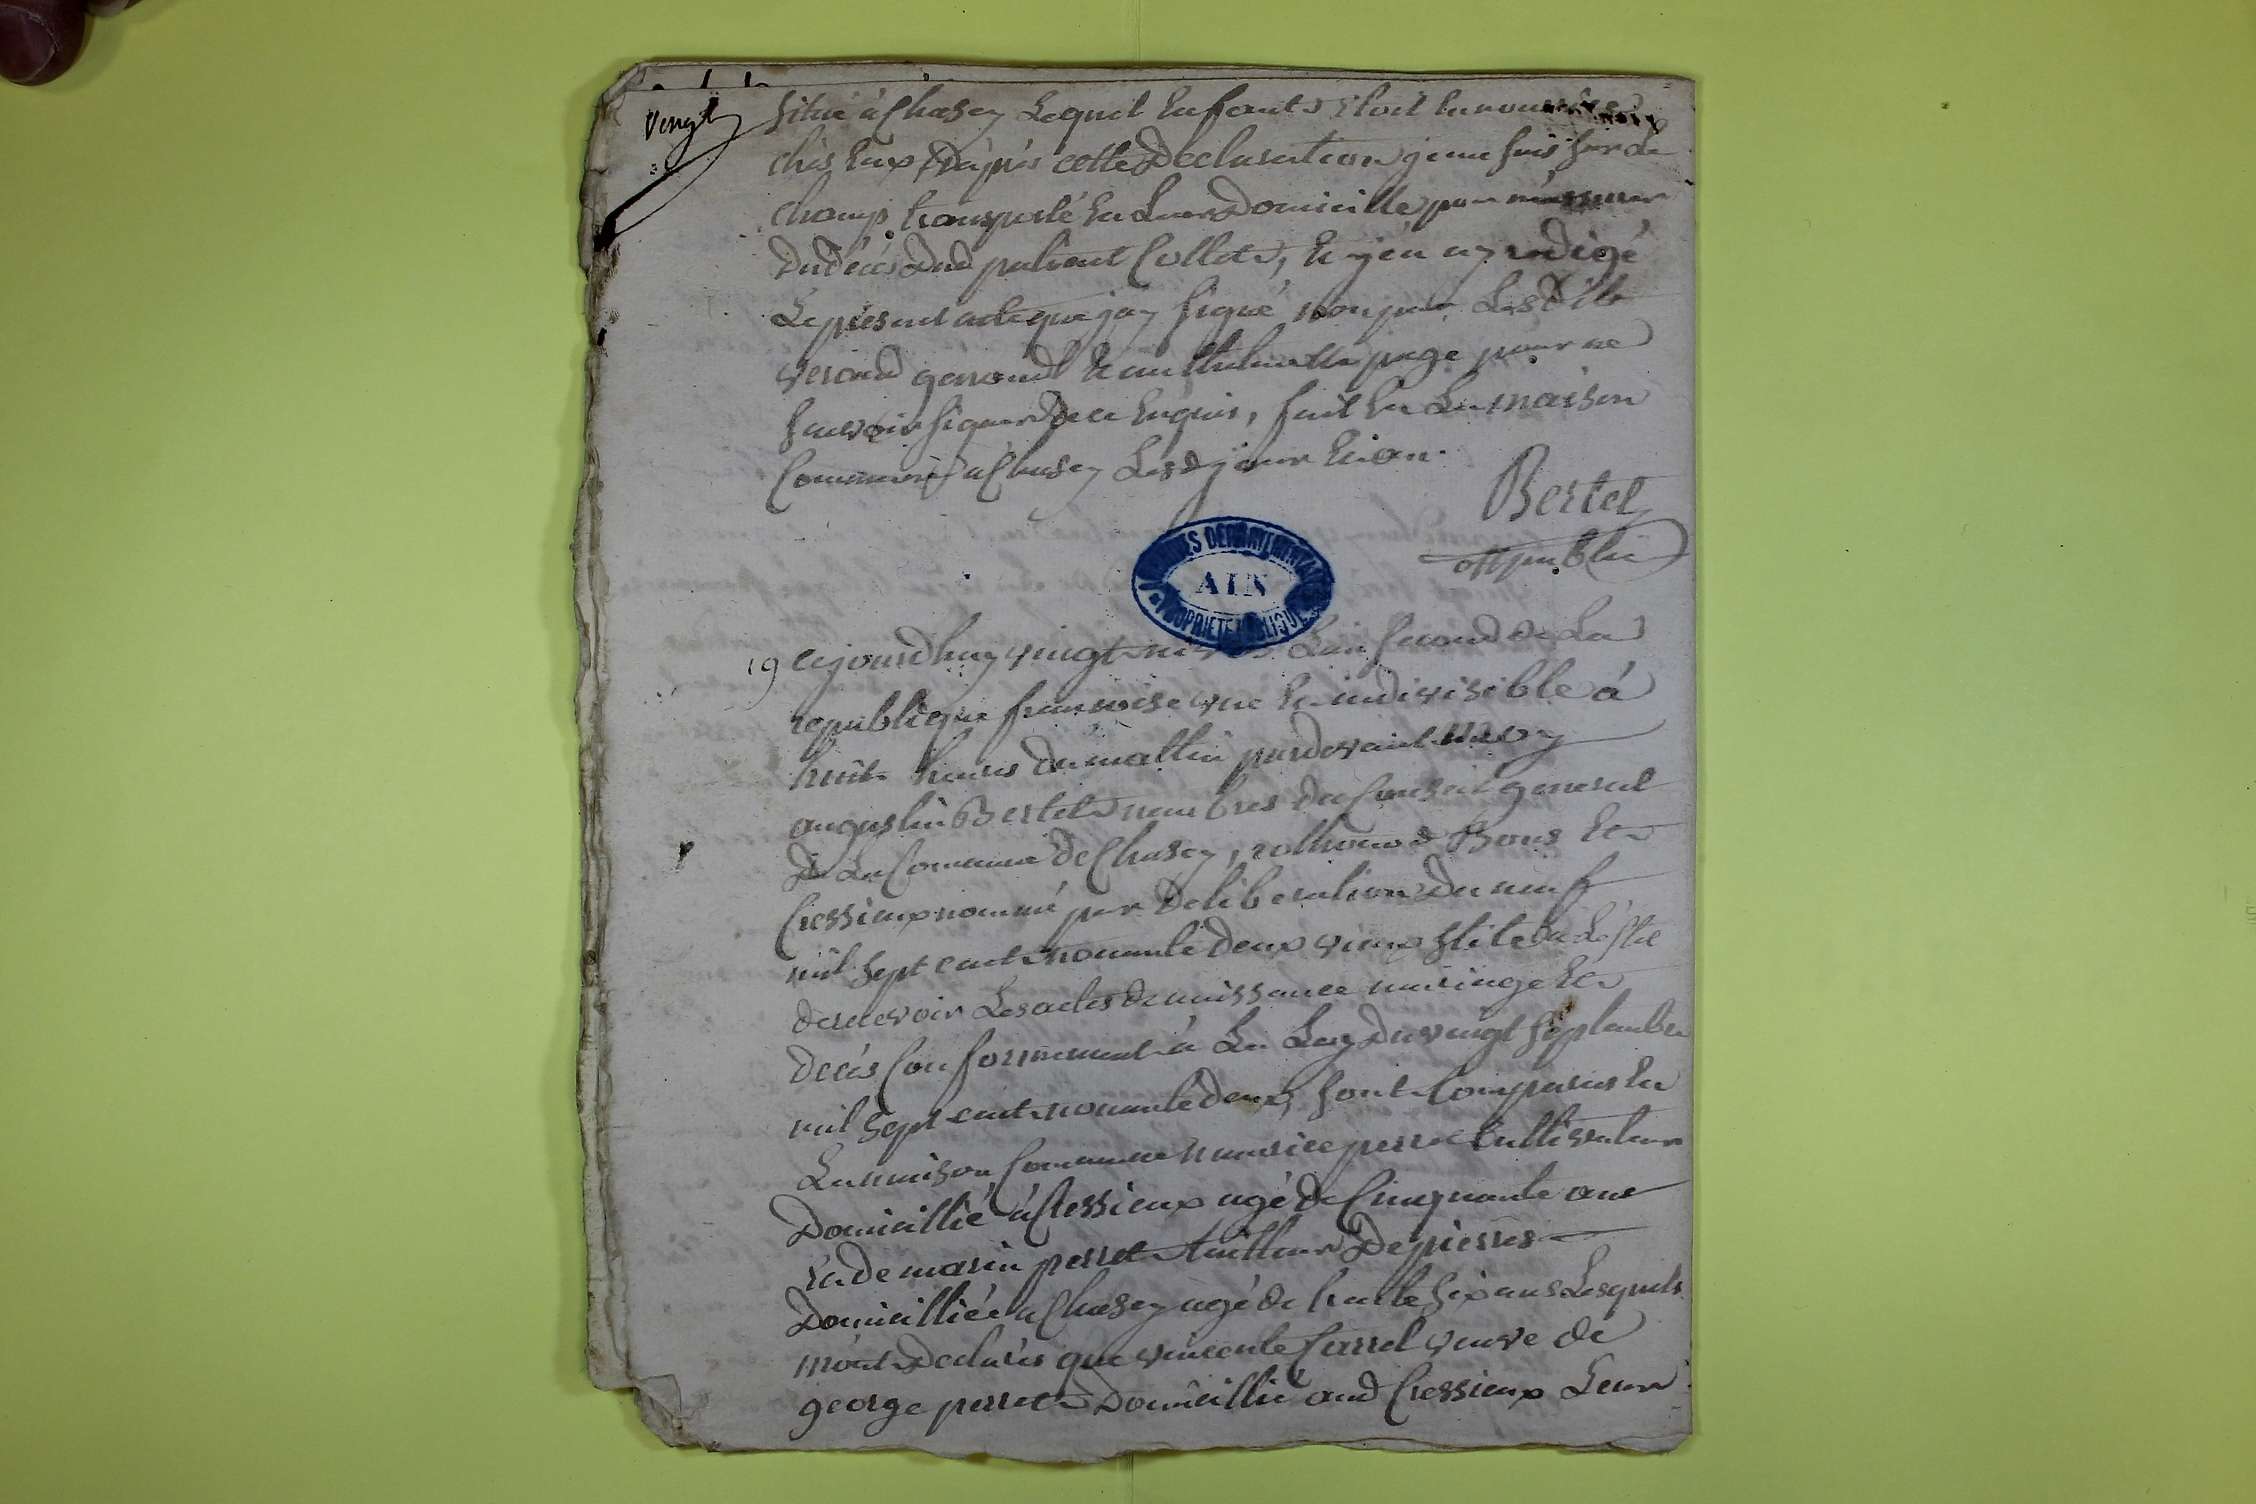 Vingt
situé à Chasey Lequel Enfant étoit En nourrice
chés Eux, D'après cette Declaration je me suis sur Le
champ transporté En Leur Domicille pour m'assurer
Du décès Dud Collet, Et j'en ay redigé
Le présent acte que j'ay signé non pas Lesd
gerrand Et page pour ne
Scavoir signer De ce Enquis, fait En La maison
Commune à Chasey Lesd jour Et an.
Bertet
off public
ARCHIVES DEPARTEMENTALES
AIN
PROPRIETE PUBLIQUE
19 Cejourdhuy vingt L'an second de La
republique francoise une Et indivisible à
huit heures du mattin pardevant moy
augustin Bertet membres du Conseil general
De La Commune De Chasey, Bons Et
Cressieux nommé par Deliberation du neuf
mil sept cent nonante deux vieux stile
De recevoir Les actes De naissance mariage Et
decès Conformement à La Loy Du vingt septembre
mil sept cent nonante deux, sont Comparus En
La maison Commune maurice perret Cultivateur
Domicillié à Cressieux agé de Cinquante ans
Et de marin perret tailleur De pierres
Domicilliée a Chasey agé de trente six ans Lesquels
m'ont Declarés que vincente Carrel veuve de
george perret Domicillié aud Cressieux Leur